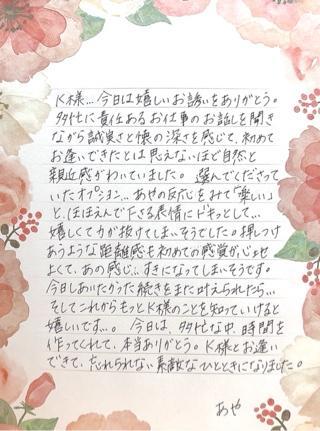 K様…今日は嬉しいお誘いをありがとう。
多忙に責任あるお仕事のお話しを聞き
ながら誠実さと懐の深さを感じて、初めて
お逢いできたとは思えないほど自然と
親近感がわいていました。選んでくださって
いたオプション…あやの反応をみて「楽しい」
と、ほほえんで下さる表情にドキっとして…
嬉しくて力が抜けてしまいそうでした。押しつけ
あうような距離感も初めての感覚が心地
よくて、あの感じ…すきになってしまいそうです。
今日しあいたかった続きをまた叶えられたら…
そしてこれからもっとK様のことを知っていけると
嬉しいです…。今日は、多忙な中、時間を
作ってくれて、本当ありがとう。K様とお逢い
できて、忘れられない素敵なひとときになりました。
あや